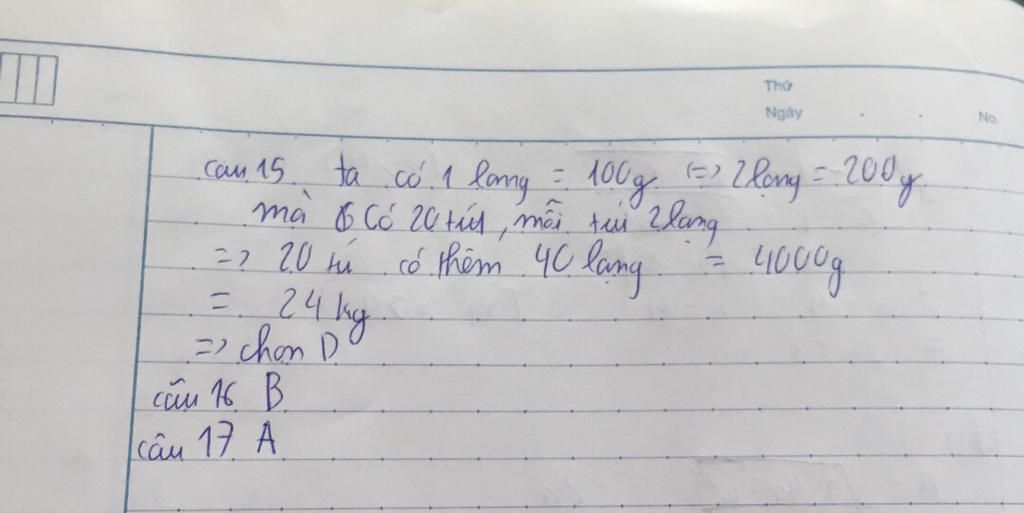 Thứ
Ngày
No.
câu 15 ta có 1 lạng = 100g <=> 2 lạng = 200g
mà có 20 túi, mỗi túi 2 lạng
=> 20 tú có thêm 40 lạng = 4000g
= 24 kg
=> chọn D
câu 16 B
câu 17 A